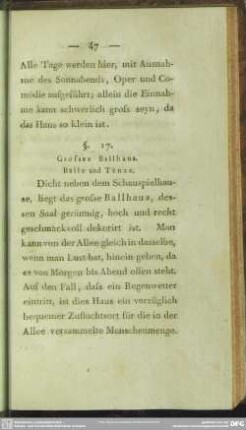 — 47 —
Alle Tage werden hier, mit Ausnah-
me des Sonnabends, Oper und Co-
mödie aufgeführt; allein die Einnah-
me kann schwerlich groſs seyn, da
das Haus so klein ist.
§. 17.
Groſses Ballhaus.
Bälle und Tänze.
Dicht neben dem Schauspielhau-
se, liegt das groſse Ballhaus, des-
sen Saal geräumig, hoch und recht
geschmackvoll dekorirt ist. Man
kann von der Allee gleich in dasselbe,
wenn man Lust hat, hinein gehen, da
es von Morgen bis Abend offen steht.
Auf den Fall, daſs ein Regenwetter
eintritt, ist dies Haus ein vorzüglich
bequemer Zufluchtsort für die in der
Allee versammelte Menschenmenge.